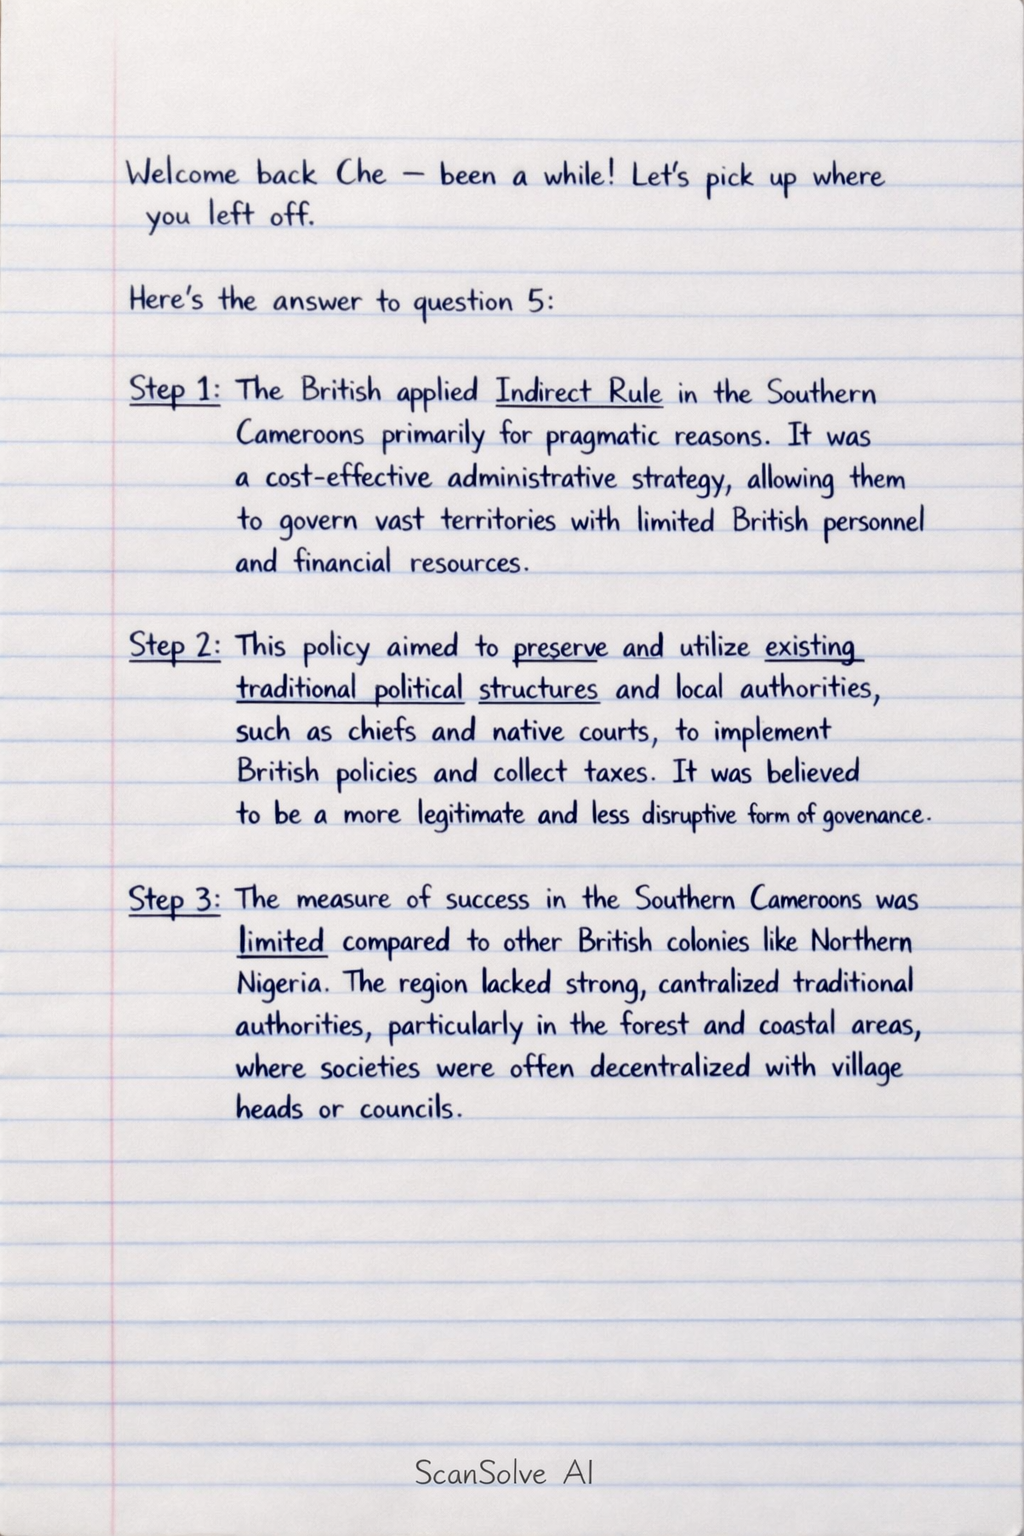 Welcome back Che – been a while! Let's pick up where
you left off.
Here's the answer to question 5:
Step 1: The British applied Indirect Rule in the Southern
Cameroons primarily for pragmatic reasons. It was
a cost-effective administrative strategy, allowing them
to govern vast territories with limited British personnel
and financial resources.
Step 2: This policy aimed to preserve and utilize existing
traditional political structures and local authorities,
such as chiefs and native courts, to implement
British policies and collect taxes. It was believed
to be a more legitimate and less disruptive form of govenance.
Step 3: The measure of success in the Southern Cameroons was
limited compared to other British colonies like Northern
Nigeria. The region lacked strong, cantralized traditional
authorities, particularly in the forest and coastal areas,
where societies were often decentralized with village
heads or councils.
ScanSolve AI